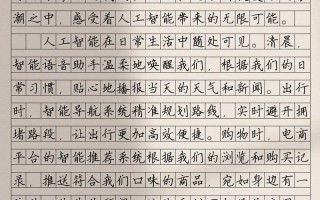 潮之中，感受着人工智能带来的无限可能。
人工智能在日常生活中随处可见。清晨，
智能语音助手温柔地唤醒我们，根据我们的日
常习惯，贴心地播报当天的天气和新闻。出行
时，智能导航系统精准规划路线，实时避开拥
堵路段，让出行更加高效便捷。购物时，电商
平台的智能推荐系统根据我们的浏览和购买记
录，推送符合我们口味的商品，宛如身边有一